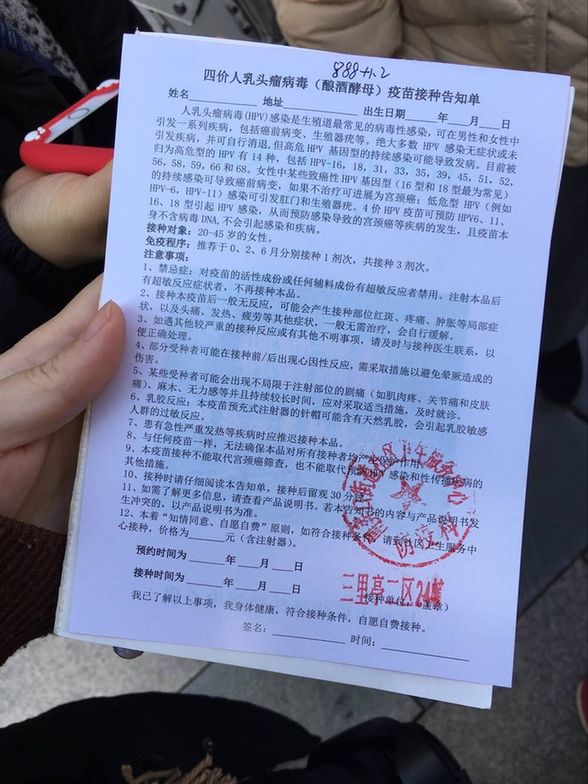 888+1.2
四价人乳头瘤病毒（酿酒酵母）疫苗接种告知单
姓名 地址 出生日期 年 月 日
人乳头瘤病毒(HPV)感染是生殖道最常见的病毒性感染，可在男性和女性中
引发一系列疾病，包括癌前病变、生殖器疣等。绝大多数 HPV 感染无症状或未
引发疾病，并可自行消退,但高危 HPV 基因型的持续感染可能导致发病。目前被
归为高危型的 HPV 有 14 种，包括 HPV-16, 18, 31, 33, 35, 39, 45, 51, 52,
56, 58, 59, 66 和 68。女性中某些致癌性 HPV 基因型（16 型和 18 型最为常见）
的持续感染可导致癌前病变，如果不治疗可进展为宫颈癌；低危型 HPV（例如
HPV-6, HPV-11）感染可引发肛门和生殖器疣。4 价 HPV 疫苗可预防 HPV6、11、
16、18 型引起 HPV 感染，从而预防感染导致的宫颈癌等疾病的发生，且疫苗本
身不含病毒 DNA,不会引起感染和疾病。
接种对象：20-45 岁的女性。
免疫程序：推荐于 0、2、6 月分别接种 1 剂次，共接种 3 剂次。
注意事项：
1、禁忌症：对疫苗的活性成份或任何辅料成份有超敏反应者禁用。注射本品后
有超敏反应症状者，不再接种本品。
2、接种本疫苗后一般无反应，可能会产生接种部位红斑、疼痛、肿胀等局部症
状，以及头痛、发热、疲劳等其他症状，一般无需治疗，会自行缓解。
3、如遇其他较严重的接种反应或有其他不明事项，请及时与接种医生联系，以
便正确处理。
4、部分受种者可能在接种前/后出现心因性反应，需采取措施以避免晕厥造成的
伤害。
5、某些受种者可能会出现不局限于注射部位的剧痛（如肌肉疼、关节痛和皮肤
痛）、麻木、无力感等并且持续较长时间，应对采取适当措施，及时就诊。
6、乳胶反应：本疫苗预充式注射器的针帽可能含有天然乳胶，会引起乳胶敏感
人群的过敏反应。
7、患有急性严重发热等疾病时应推迟接种本品。
8、与任何疫苗一样，无法确保本品对所有接种者均产生保护作用。
9、本疫苗接种不能取代宫颈癌筛查，也不能取代预防 HPV 感染和性传播疾病的
其他措施。
10、接种时请仔细阅读本告知单，接种后留观 30 分钟
11、如需了解更多信息，请查看产品说明书。若本告知书的内容与产品说明书发
生冲突的，以产品说明书为准。
12、本着“知情同意、自愿自费”原则，如符合接种条件，请到社区卫生服务中
心接种，价格为 元（含注射器）。
预约时间为 年 月 日
接种时间为 年 月 日
接种单位：（盖章）
我已了解以上事项，我身体健康，符合接种条件，自愿自费接种。
签名： 时间：
街道社区卫生服务中心
防疫科
三里亭二区24幢